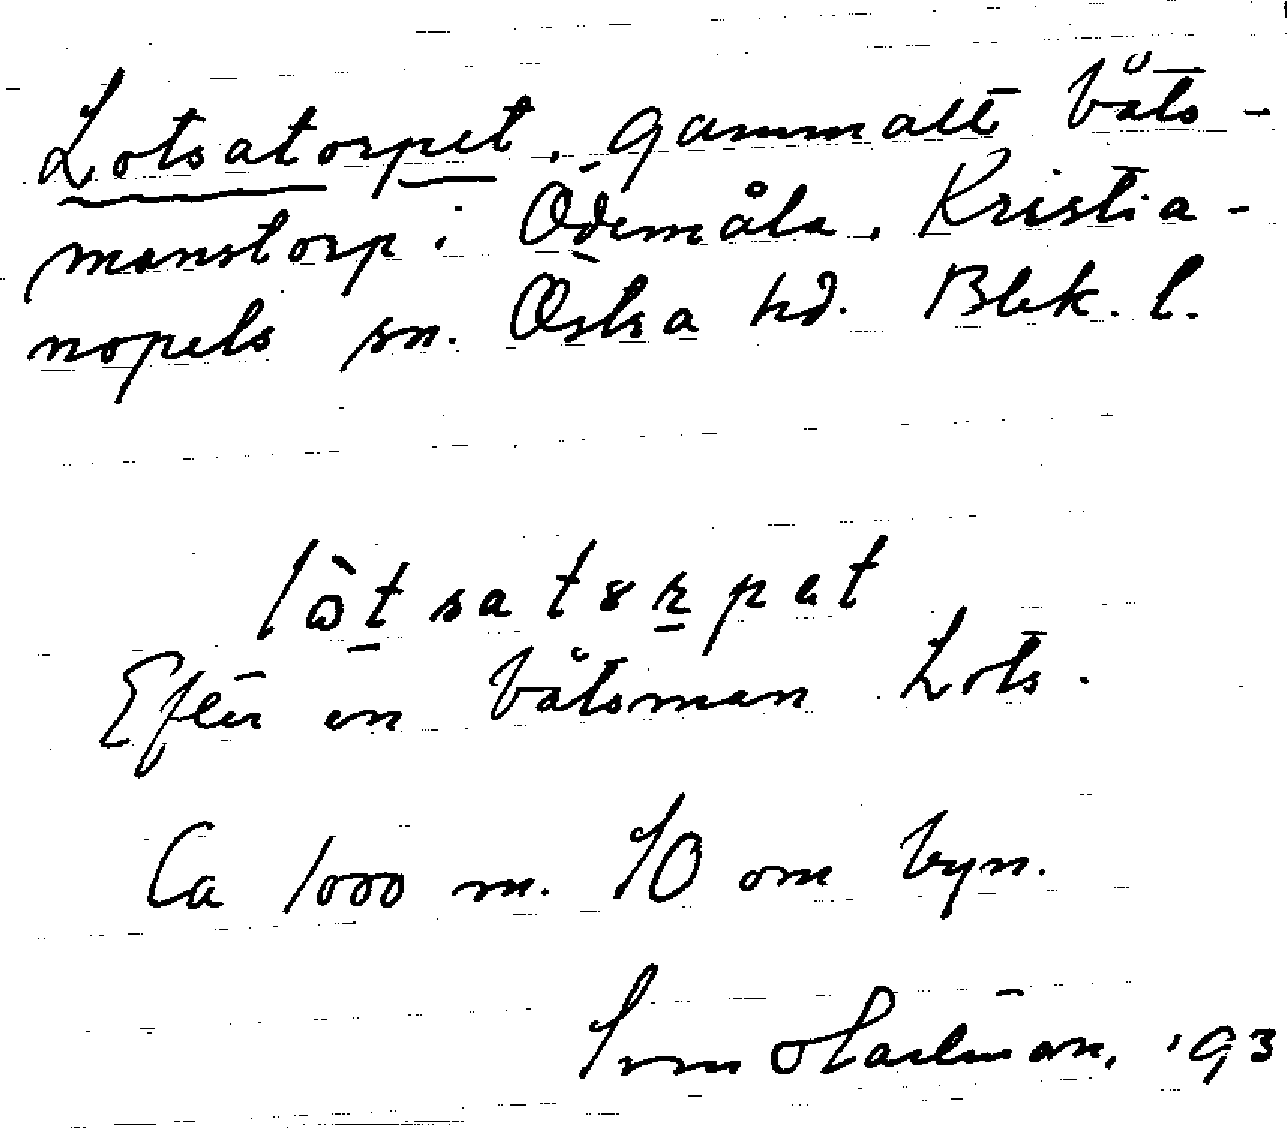 Lotsatorpet, gammalt båts-
manstorp i Ödemåla, Kristia-
nopels sn. Östra hd. Blek. l.
Efter en båtsman Lots.
Ca 1000 m. SO om byn.
'93